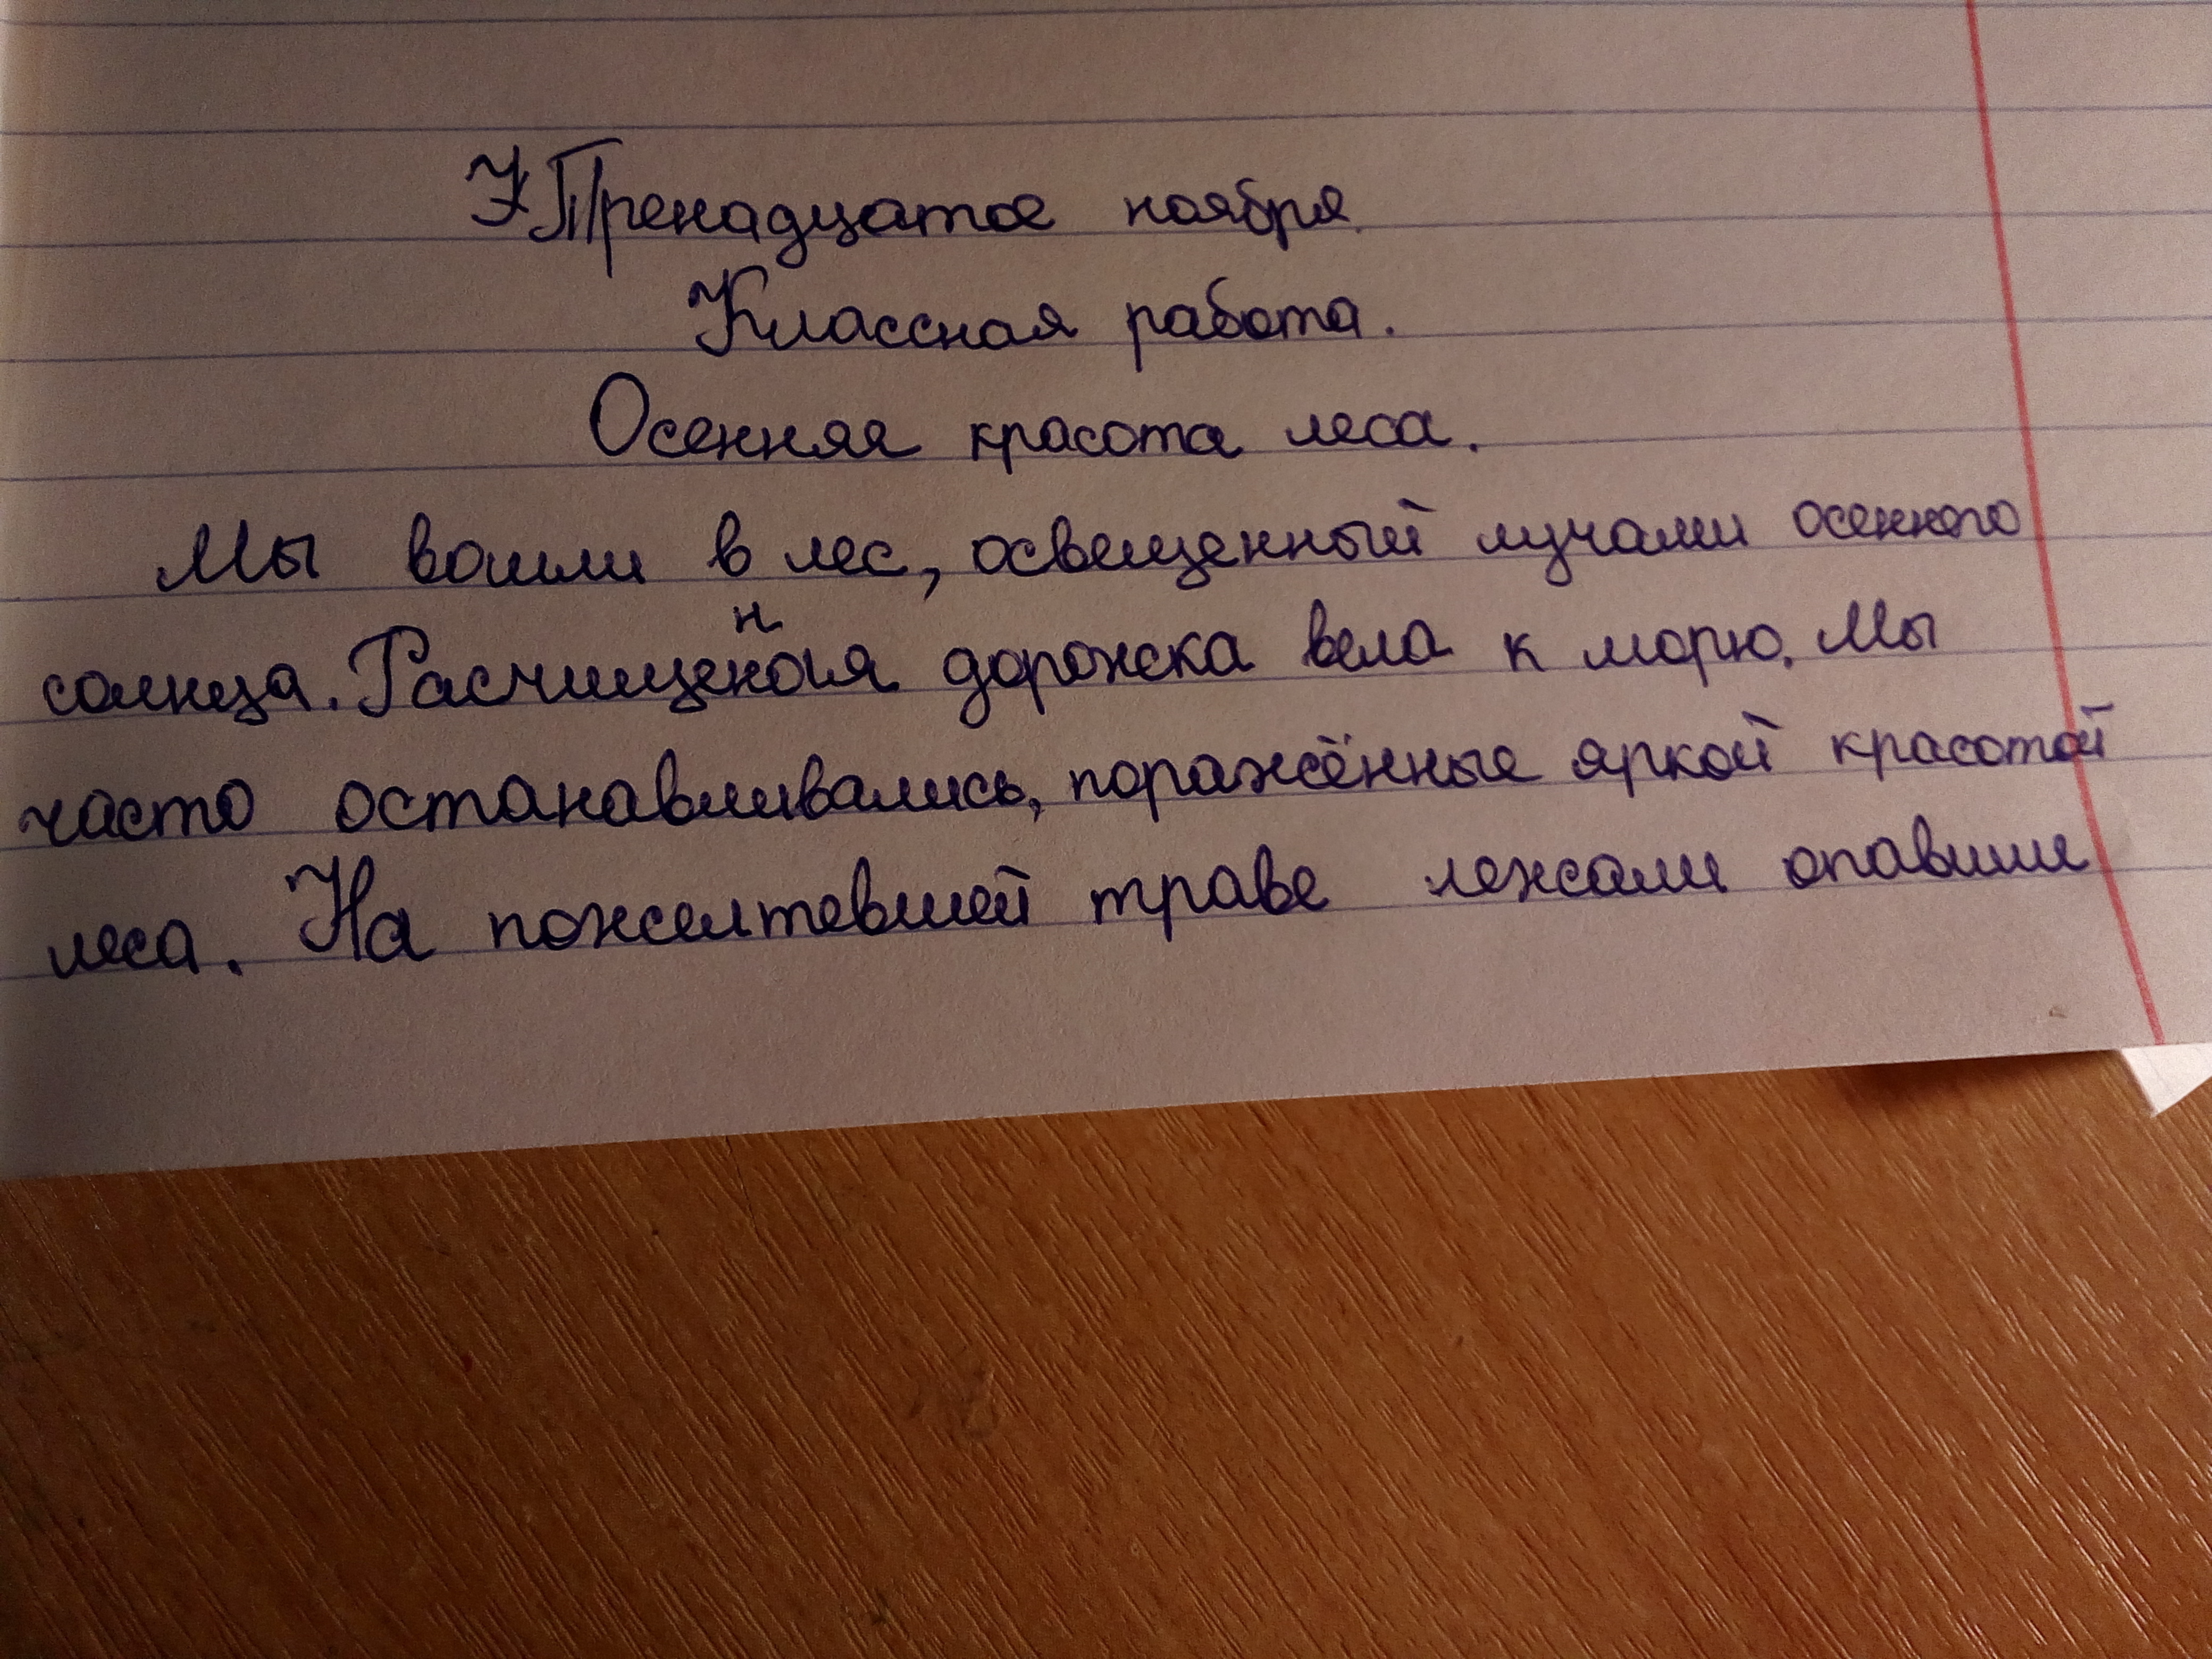 Тренадцатое ноября.
Классная работа.
Осенняя красота леса.
Мы вошли в лес, освещенный лучами осеннего
солнца. Расчищенная дорожка вела к морю. Мы
часто останавливались, поражённые яркой красотой
леса. На пожелтевшей траве лежали опавшие